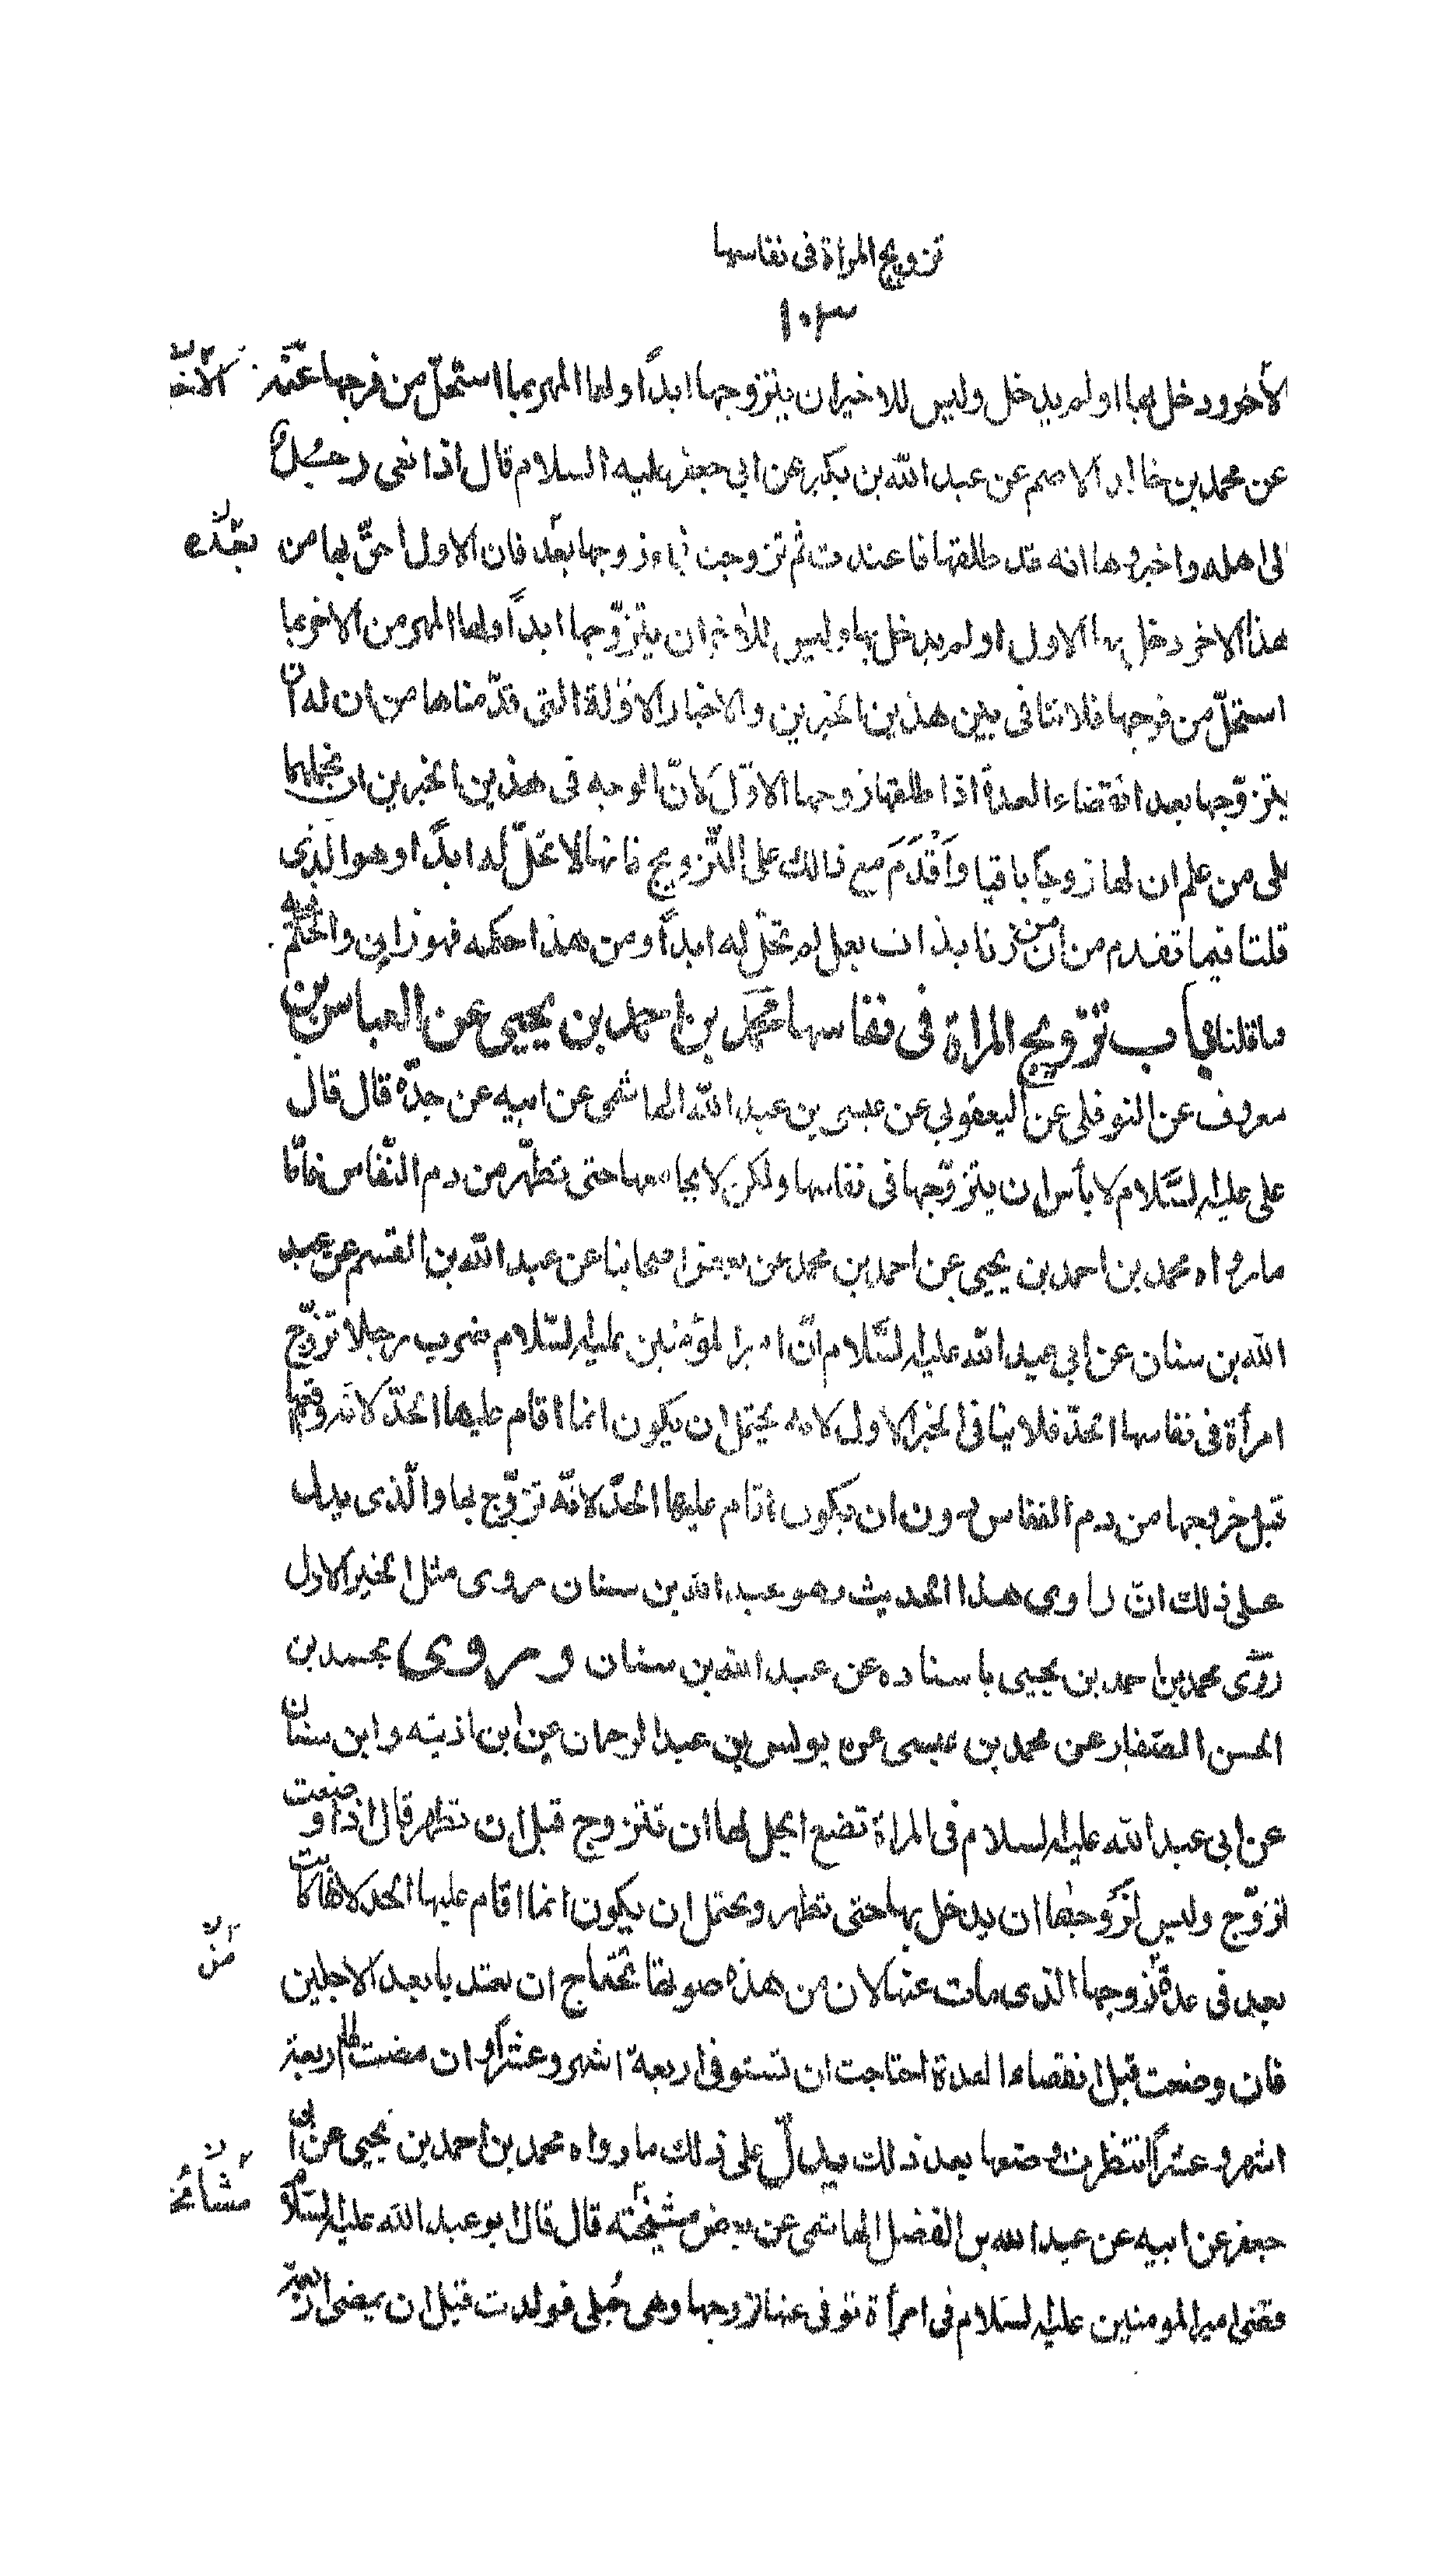 تزويج المراة فى نفاسها
١٠٣
الأخر ودخل بها او لم يدخل وليس للاخير ان يتزوجها ابداً ولها المهر بما استحلّ من فرجها عنه الأخر
عن محمد بن خالد الاصم عن عبد الله بن بكير عن ابي جعفر عليه السلام قال اذا نعى رجل
الى اهله واخبروها انه قد طلقها فاعتدت ثم تزوجت فجاء زوجها بعد فان الاول أحقّ بها من بعده
هذا الاخر دخل بها الاول او لم يدخل بها وليس للاخر ان يتزوّجها ابداً ولها المهر من الاخر بما
استحلّ من فرجها فلا تنافى بين هذين الخبرين والاخبار الاوّلة التى قدّمناها من ان له ان
يتزوّجها بعد انقضاء العدة اذا طلقها زوجها الاوّل لانّ الوجه فى هذين الخبرين ان نحملهما
على من علم ان لها زوجاً باقيا وأقدَمَ مع ذالك على التّزويج فانها لا تحلّ له ابداً وهو الّذى
قلنا فيما تقدم من أن من زنا بذات بعل لم تحلّ له ابداً ومن هذا حكمه فهو زانى والحكم فيه
ما قلناه باب تزويج المراة فى نفاسها محمّد بن احمد بن يحيى عن العباس بن
معروف عن النوفلى عن اليعقوبى عن عيسى بن عبد الله الهاشمى عن ابيه عن جدّه قال قال
على عليه السّلام لا بأس ان يتزوّجها فى نفاسها ولكن لا يجامعها حتى تطهّر من دم النّفاس فامّا
ما رواه محمد بن احمد بن يحيى عن احمد بن محمد عن بعض اصحابنا عن عبد الله بن القسم عن عبد
الله بن سنان عن ابى عبد الله عليه السّلام انّ امير المؤمنين عليه السّلام ضرب رجلا تزوّج
امرأة فى نفاسها الحدّ فلا ينافى الخبر الاول لانه يحتمل ان يكون انما اقام عليها الحدّ لانه وقعها
قبل خروجها من دم النفاس دون ان يكون اقام عليها الحدّ لانّه تزوّج بها والّذى يدل
على ذلك انّ راوى هذا الحديث وهو عبد الله بن سنان روى مثل الخبر الاول
روى محمد بن احمد بن يحيى باسناده عن عبد الله بن سنان وروى محمد بن
الحسن الصفار عن محمد بن عيسى عن يونس بن عبد الرحمان عن ابن اذينه وابن سنان
عن ابى عبد الله عليه السلام فى المراة تضع ايحل لها ان تتزوج قبل ان تطهر قال اذا وضعت
تزوّج وليس لزوجها ان يدخل بها حتى تطهر ويحتمل ان يكون انما اقام عليها الحد لانها كانت
بعد فى عدة زوجها الذى مات عنها لان من هذه صورتها تحتاج ان تعتد بابعد الاجلين منّ
فان وضعت قبل انقضاء العدة احتاجت ان تستوفى اربعة اشهر وعشراً وان مضت لها اربعة
اشهر وعشراً انتظرت وضعها بعد ذلك يدلّ على ذلك ما رواه محمد بن احمد بن يحيى عن ابى
جعفر عن ابيه عن عبد الله بن الفضل الهاشمى عن بعض مشيخته قال قال ابو عبد الله عليه السّلام
قضى امير المومنين عليه السّلام فى امرأة توفى عنها زوجها وهى حُبلى فولدت قبل ان يمضى اربعة